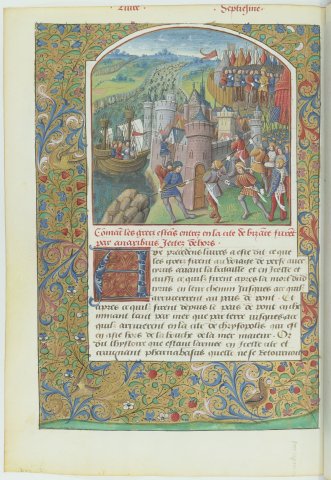 Livre Septiesme
Comãt les grecz estãs entrez en la cite de bizãce furẽt
par anaxibius Jettez dehors.
Es precedens livres a este dit ce que
les grecz firent au voiage de perse avec
cirus avant la bataille et en Jcelle et
aussi ce quilz firent apres la mort dud
cirus en leur chemin Jusques ace quilz
arriverent au païs de pont. Et
apres ce quilz firent depuis le païs de pont en che
minant tant par mer que par terre Jusques ace
quilz arriverent en la cite de chrysopolis qui est
en asie hors de la bouche de la mer maieur. Or
dit lhystoire que estant larmee en Jcelle cite et
craignant pharnabasus quelle ne se detournast